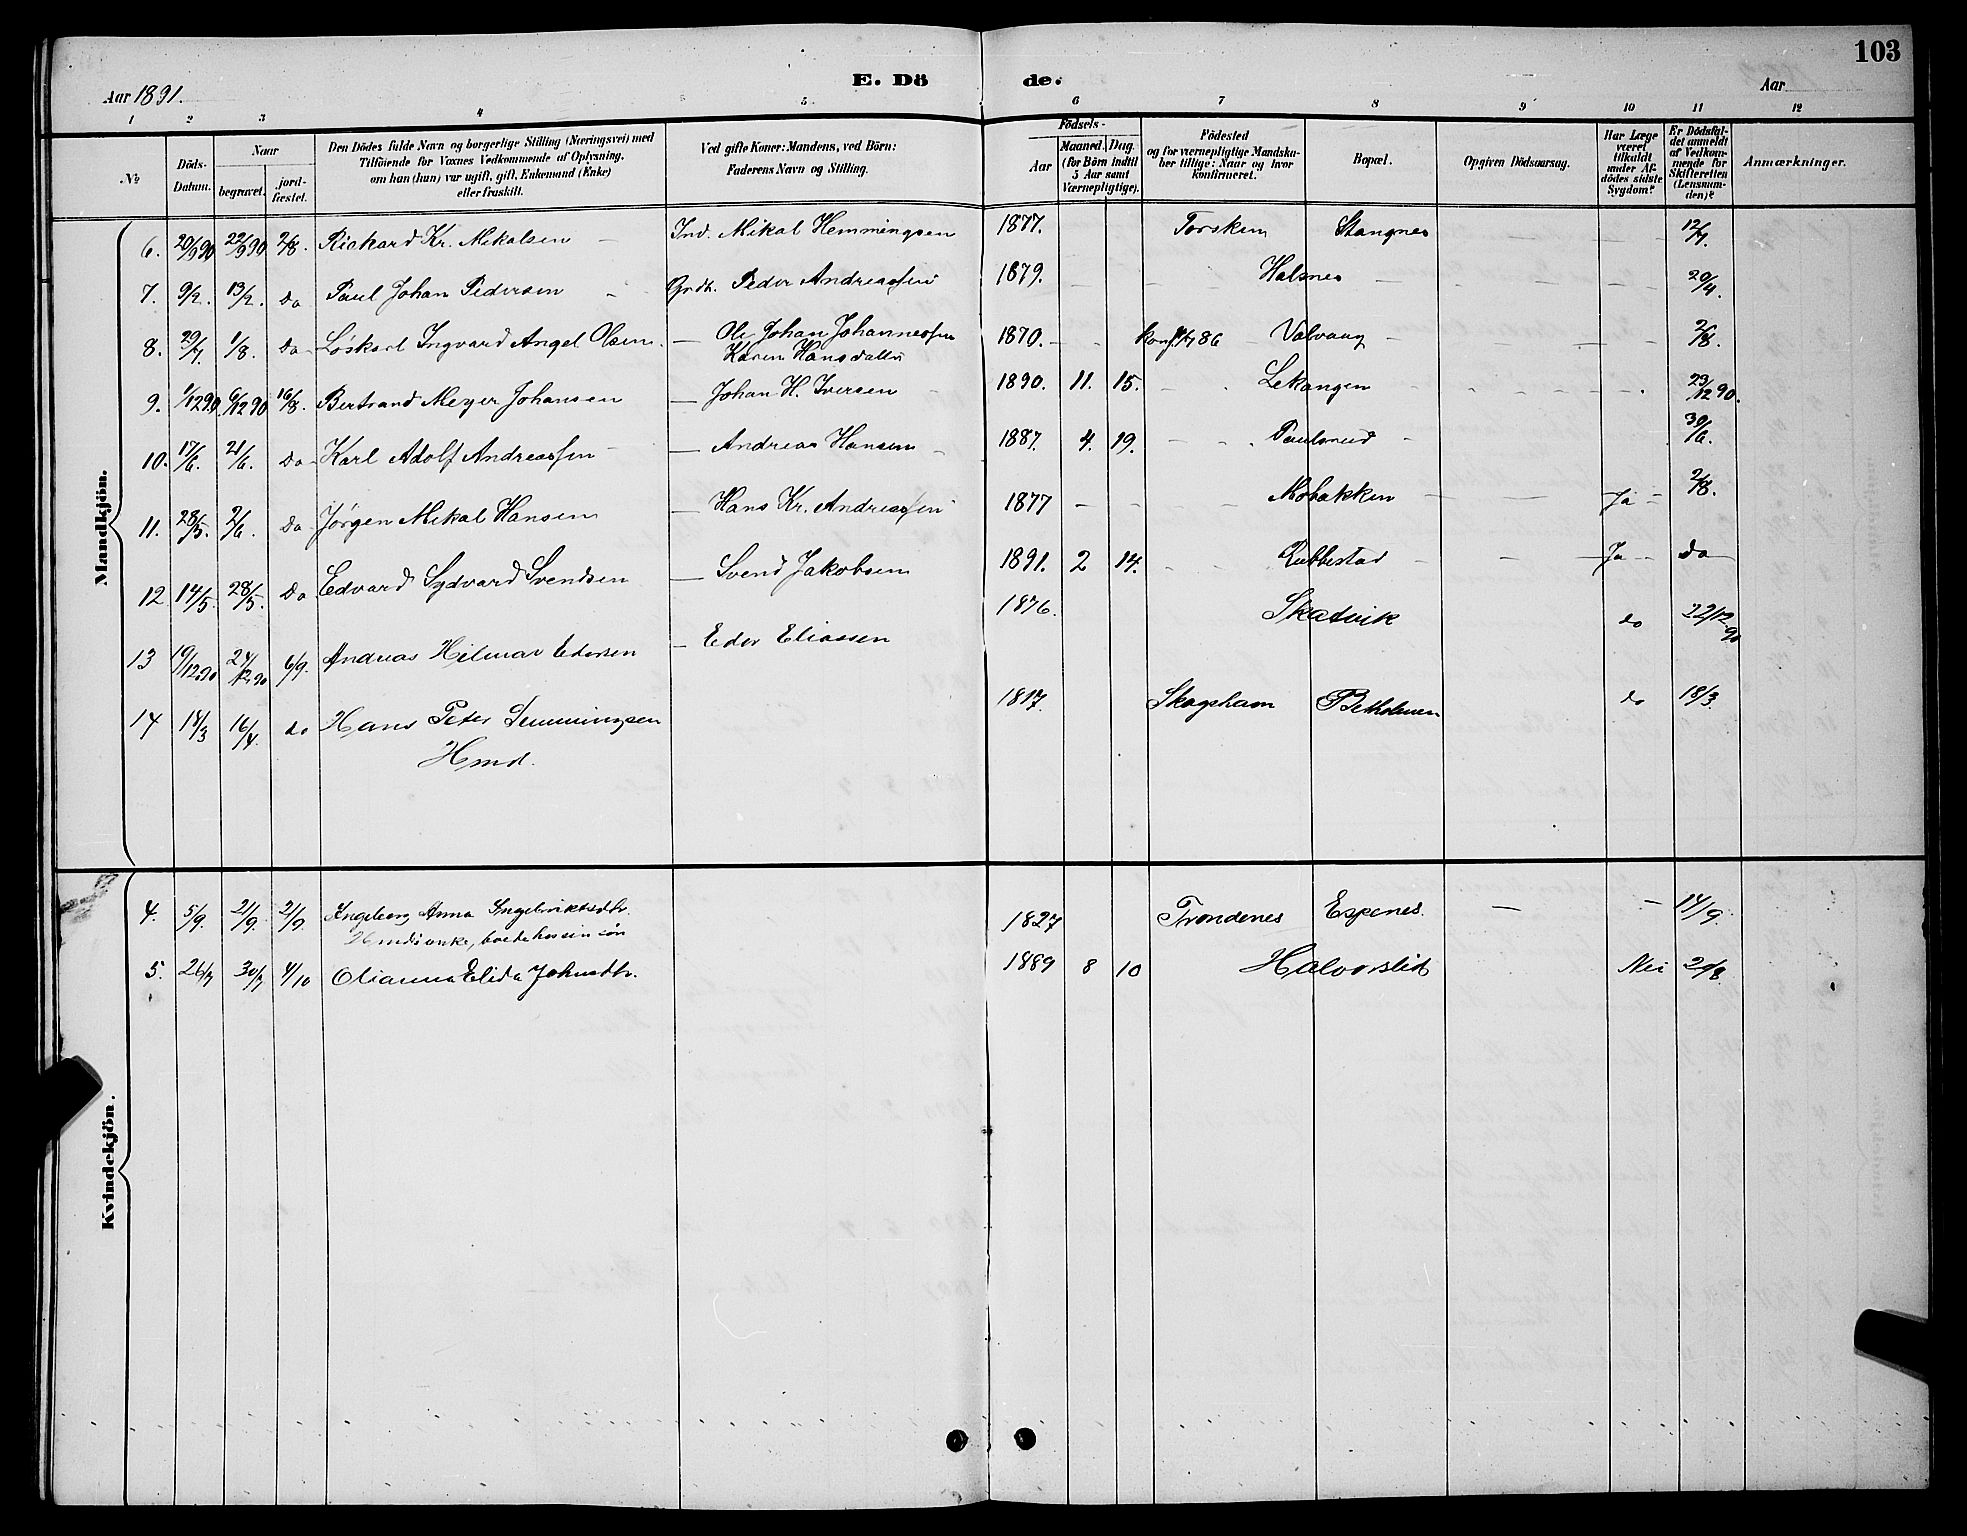 103
E. Dö de.
Aar 1891. Aar
1 2 3 4 5 6 7 8 9 10 11 12
No. Döds-Datum. Naar begravet. jordfæstet. Den Dödes fulde Navn og borgerlige Stilling (Næringsvei) med Tilföiende for Voxnes Vedkommende af Oplysning, om han (hun) var ugift, gift, Enkemand (Enke) eller fraskilt. Ved gifte Koner: Mandens, ved Börn: Faderens Navn og Stilling. Födsels- Aar Maaned. Dag. (for Börn indtil 5 Aar samt Værnepligtige). Födested og for værnepligtige Mandskaber tillige: Naar og hvor konfirmeret. Bopæl. Opgiven Dödsaarsag. Har Læge været tilkaldt under Afdödes sidste Sygdom? Er Dödsfaldet anmeldt af Vedkommende for Skifteretten (Lensmanden)? Anmærkninger.
Mandkjön.
6. 20/9 90 22/9 90 2/8. Rickard Kr. Mikalsen – Ind. Mikal Hemmingsen 1877. Torsken Stangnes 12/7.
7. 9/2. 13/2. Do Paul Johan Pedersen – Grdb. Peder Andreassen 1879. Halsnes 20/4.
8. 29/7. 1/8. Do Løskarl Ingvard Angel Olsen. – Ole Johan Johannessen 1870. konf. 86 Valvaag 2/8.
Karen Hansdatter
9. 1/12 90. 6/12 90 16/8. Bertrand Meyer Johansen – Johan H. Iversen 1890. 11. 15. Lekangen 23/12 90.
10. 17/6. 21/6. Do Karl Adolf Andreassen – Andreas Hansen 1887. 4. 19. Paulsrud 30/6.
11. 28/5. 2/6. Do Jørgen Mikal Hansen – Hans Kr. Andreassen 1877 Mobakken Ja 2/8.
12. 14/5. 28/5. Do Edvard Sydvard Svendsen – Svend Jakobsen 1891. 2 14. Rubbestad Ja do
13 19/12 90 24/12 90 6/9. Andreas Hilmar Edersen – Eder Eliassen 1876. Skatvik do 22/12 90
14 18/3 16/4. do Hans Peter Demmingsen 1817. Skogshavn Betholmen do 18/3.
Hmd.
Kvindekjön.
4. 5/9. 21/9. 21/9. Ingeborg Anna Ingebriktsdtr. 1827 Trondenes Espenes. – – 14/9.
Hmds enke, boede hos sin søn
5. 26/7 30/7 4/10 Olianna Elida Johnsdtr. 1889 8 10 Halvorslid Nei 20/8.